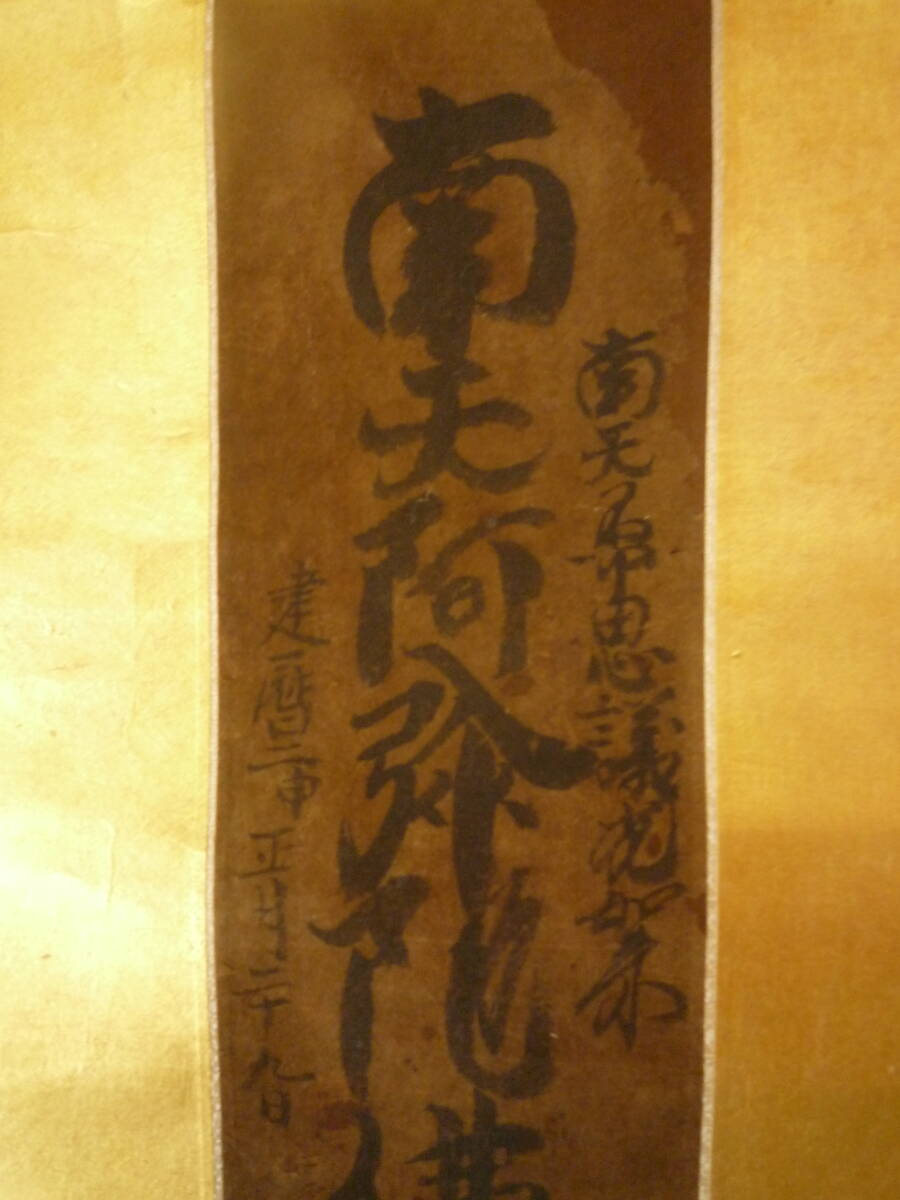 南无不可思議光如来
南无阿弥陀佛
建暦二申正月二十九日